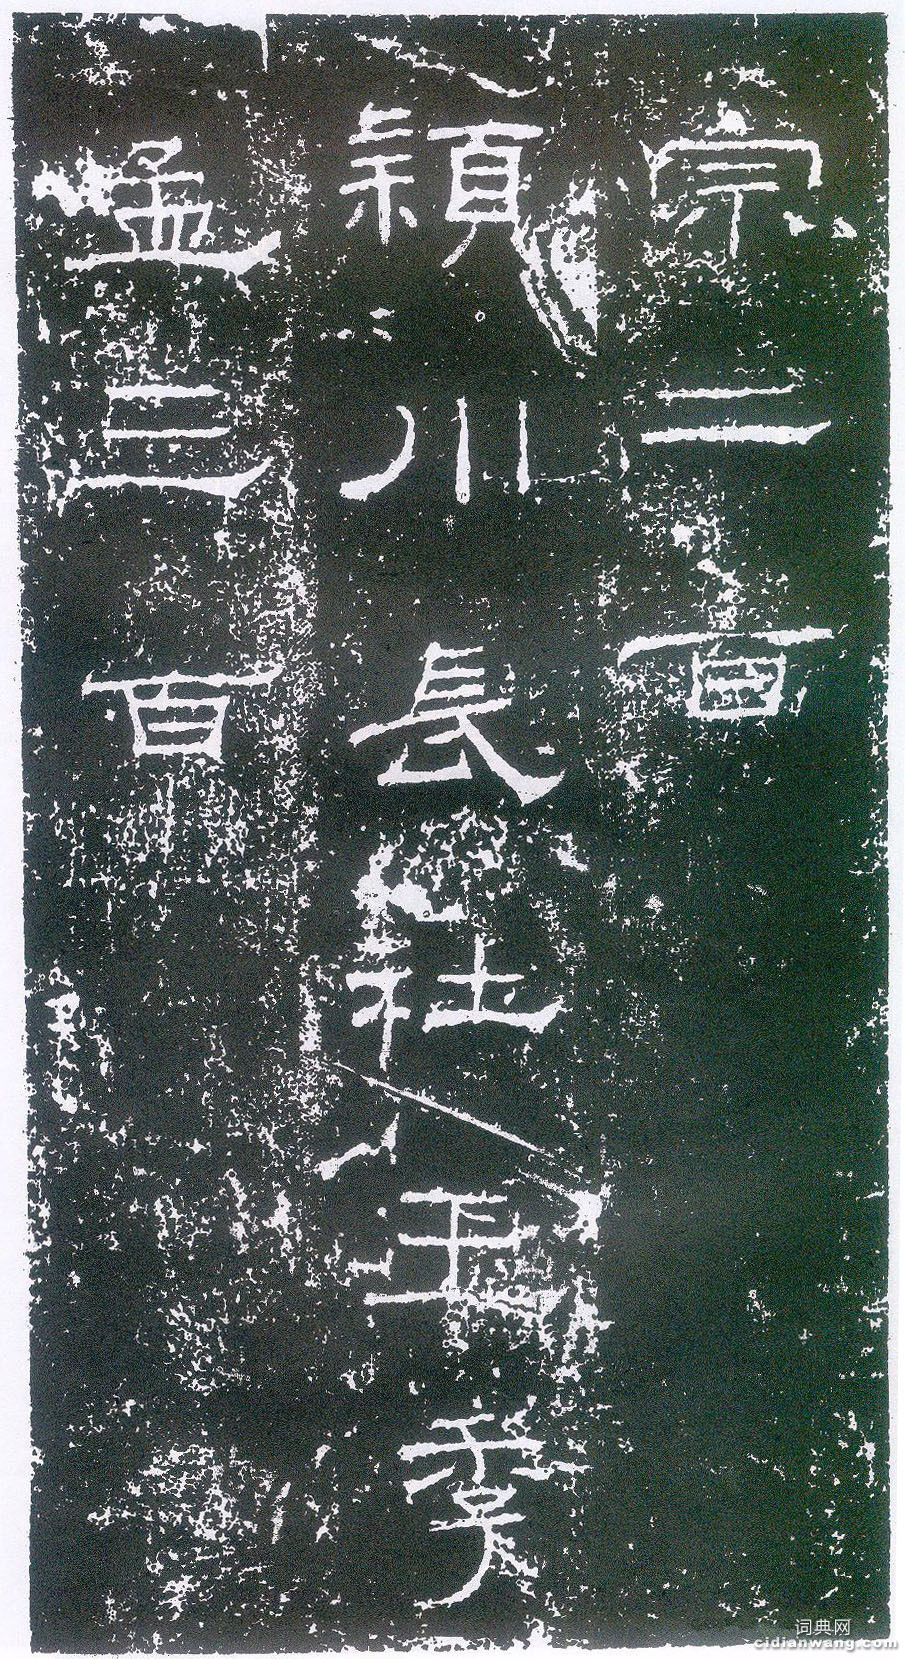 宗二百
穎川長社王季
孟三百
词典网
cidianwang.com